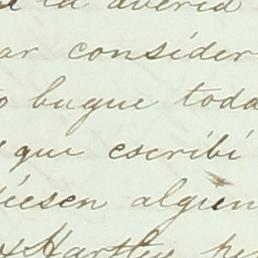 la averia
ar consider
buque toda
que escribi
iesen algun
Hartley